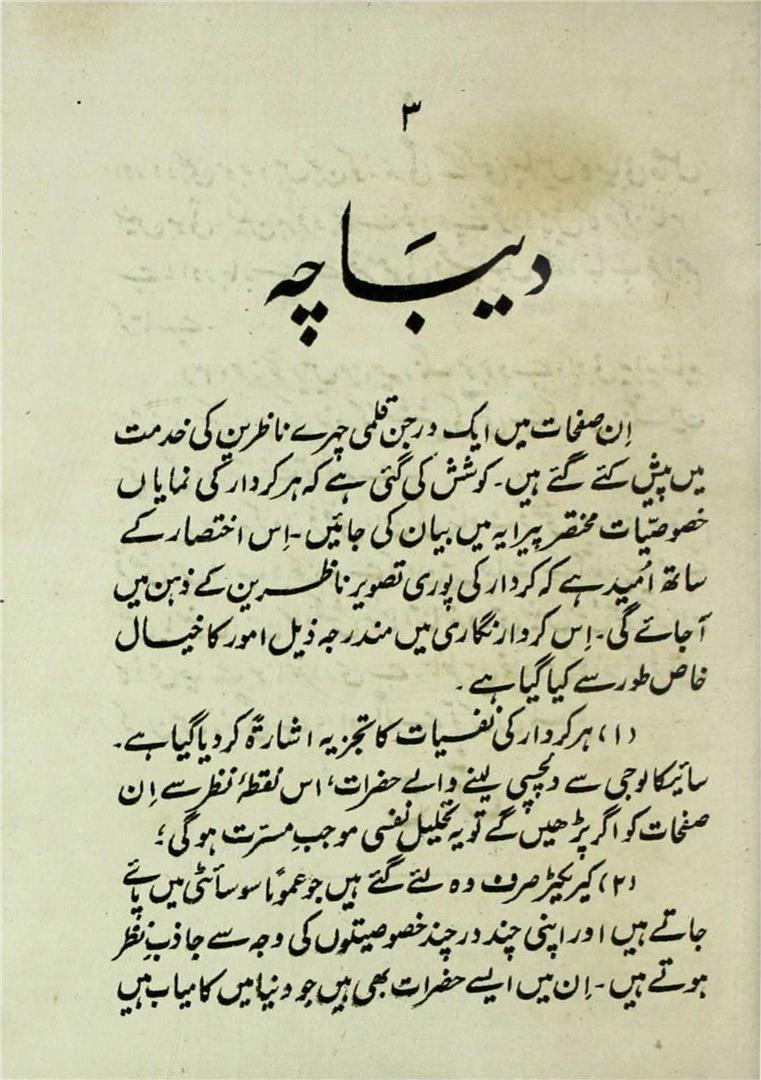 ۳
دیباچہ
اِن صفحات میں ایک درجن قلمی چہرے ناظرین کی خدمت
میں پیش کئے گئے ہیں۔ کوشش کی گئی ہے کہ ہر کردار کی نمایاں
خصوصیّات مختصر پیرایہ میں بیان کی جائیں۔ اِس اختصار کے
ساتھ اُمید ہے کہ کردار کی پوری تصویر ناظرین کے ذہن میں
آجائے گی۔ اِس کردار نگاری میں مندرجہ ذیل امور کا خیال
خاص طور سے کیا گیا ہے۔
(۱) ہر کردار کی نفسیات کا تجزیہ اشارۃً کر دیا گیا ہے۔
سائیکالوجی سے دلچسپی لینے والے حضرات، اس نقطۂ نظر سے اِن
صفحات کو اگر پڑھیں گے تو یہ تحلیل نفسی موجبِ مسرّت ہوگی؛
(۲) کیریکٹر صرف وہ لئے گئے ہیں جو عموماً سوسائٹی میں پائے
جاتے ہیں اور اپنی چند در چند خصوصیتوں کی وجہ سے جاذبِ نظر
ہوتے ہیں۔ اِن میں ایسے حضرات بھی ہیں جو دنیا میں کامیاب ہیں